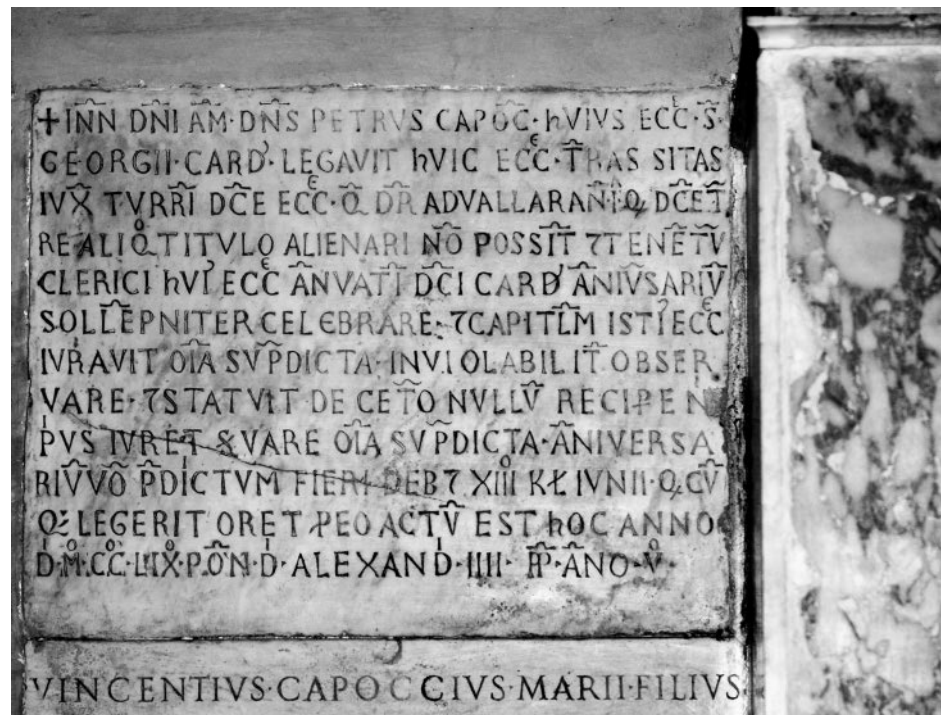 + INN DNI AM · DNS PETRVS CAPOC · hVIVS ECC · S ·
GEORGII · CARD' · LEGAVIT hVIC ECC · TRAS SITAS
IVX TVRRI DCE ECC · Q DR ADVALLARANI · Q DCE T
RE ALIQ TITVLO ALIENARI NO POSSIT 7 TENETV
CLERICI hVI' ECC ANVATI DCI CARD' ANIVSARIV
SOLLEPNITER CELEBRARE · 7 CAPITLM ISTI' ECC
IVRAVIT OIA SVPDICTA · INVIOLABILIT OBSER
VARE · 7 STATVIT DE CETO NVLLV RECIPE N
PVS IVRET &VARE OIA SVPDICTA · ANIVERSA
RIV VO PDICTVM FIERI DEB 7 XIIII KL IVNII · Q CV
Q LEGERIT ORET PEO ACTV EST hOC ANNO
D · M · CC · LIIX · PON · D · ALEXAND · IIII · PP · ANO · V ·
VINCENTIVS · CAPOCCIVS · MARII · FILIVS